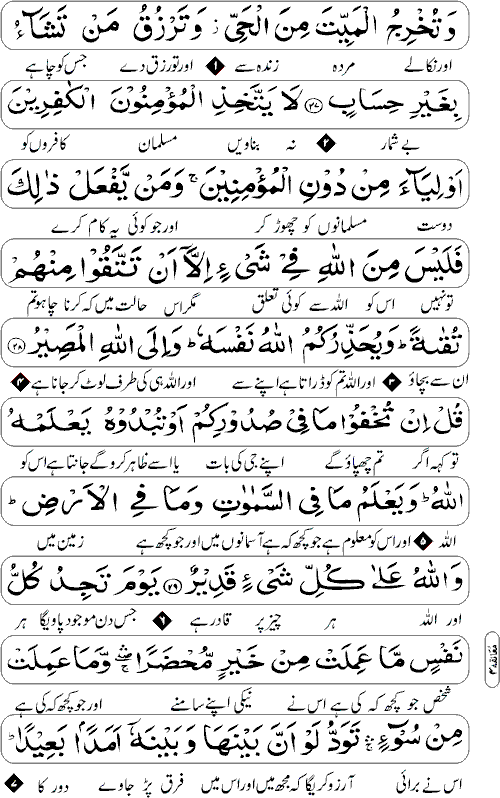 وَتُخْرِجُ الْمَيِّتَ مِنَ الْحَيِّ ز وَتَرْزُقُ مَنْ تَشَآءُ
اور نکالے مردہ زندہ سے ۱ اور تو رزق دے جس کو چاہے
بِغَيْرِ حِسَابٍ ﴿۲۷﴾ لَا يَتَّخِذِ الْمُؤْمِنُوْنَ الْكٰفِرِيْنَ
بے شمار ۲ نہ بناویں مسلمان کافروں کو
اَوْلِيَآءَ مِنْ دُوْنِ الْمُؤْمِنِيْنَ ۚ وَمَنْ يَّفْعَلْ ذٰلِكَ
دوست مسلمانوں کو چھوڑ کر اور جو کوئی یہ کام کرے
فَلَيْسَ مِنَ اللّٰهِ فِيْ شَيْءٍ اِلَّآ اَنْ تَتَّقُوْا مِنْهُمْ
تو نہیں اس کو اللہ سے کوئی تعلق مگر اس حالت میں کہ کرنا چاہو تم
تُقٰىةً ؕ وَيُحَذِّرُكُمُ اللّٰهُ نَفْسَهٗ ؕ وَاِلَى اللّٰهِ الْمَصِيْرُ ﴿۲۸﴾
ان سے بچاؤ ۳ اور اللہ تم کو ڈراتا ہے اپنے سے اور اللہ ہی کی طرف لوٹ کر جانا ہے ۴
قُلْ اِنْ تُخْفُوْا مَا فِيْ صُدُوْرِكُمْ اَوْ تُبْدُوْهُ يَعْلَمْهُ
تو کہہ اگر تم چھپاؤ گے اپنے جی کی بات یا اسے ظاہر کرو گے جانتا ہے اس کو
اللّٰهُ ؕ وَيَعْلَمُ مَا فِي السَّمٰوٰتِ وَمَا فِي الْاَرْضِ ؕ
اللہ ۵ اور اس کو معلوم ہے جو کچھ کہ ہے آسمانوں میں اور جو کچھ ہے زمین میں
وَاللّٰهُ عَلٰى كُلِّ شَيْءٍ قَدِيْرٌ ﴿۲۹﴾ يَوْمَ تَجِدُ كُلُّ
اور اللہ ہر چیز پر قادر ہے ۶ جس دن موجود پاویگا ہر
نَفْسٍ مَّا عَمِلَتْ مِنْ خَيْرٍ مُّحْضَرًا ۛۚ وَّمَا عَمِلَتْ
شخص جو کچھ کہ کی ہے اس نے نیکی اپنے سامنے اور جو کچھ کہ کی ہے
مِنْ سُوْٓءٍ ۛۚ تَوَدُّ لَوْ اَنَّ بَيْنَهَا وَبَيْنَهٗٓ اَمَدًۢا بَعِيْدًا ؕ
اس نے برائی آرزو کریگا کہ مجھ میں اور اس میں فرق پڑ جاوے دور کا ۷
معانقة ۳